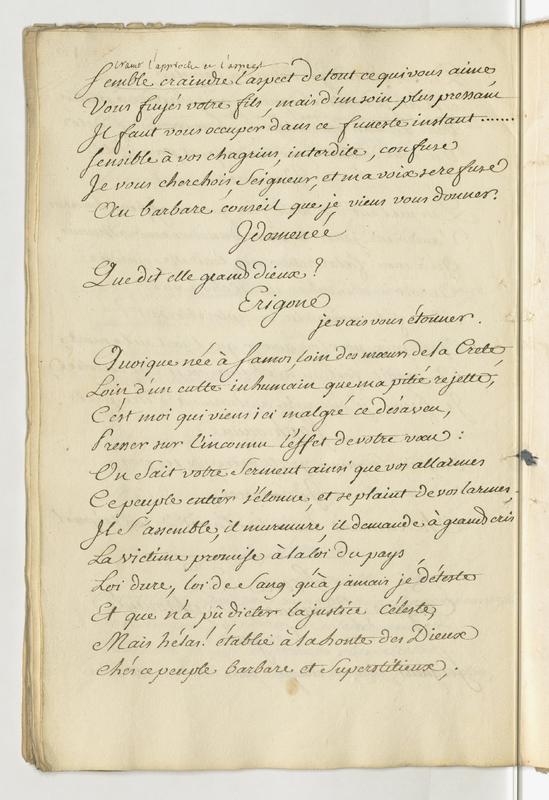 craint l'approche et l'aspect
Semble craindre l'aspect de tout ce qui vous aime
Vous fuyés votre fils, mais d'un soin plus pressant
Il faut vous occuper dans ce funeste instant .......
Sensible à vos chagrins, interdite, confuse
Je vous cherchois, Seigneur, et ma voix se refuse
Au barbare conseil que je viens vous donner.
Idomenée
Que dit elle grand dieux ?
Erigone
je vais vous étonner.
Quoique née à Samos, loin des mœurs de la Crete,
Loin d'un culte inhumain que ma pitié rejette,
C'est moi qui viens ici malgré ce désaveu,
Presser sur l'inconnu l'effet de votre vœu :
On Sait votre Serment ainsi que vos allarmes
Ce peuple entier s'étonne, et se plaint de vos larmes,
Il S'assemble, il murmure, il demande à grand cris
La victime promise à la loi du pays,
Loi dure, loi de Sang qu'à jamais je déteste
Et que n'a pû dicter la justice céleste,
Mais hélas! établie à la honte des Dieux
Chés ce peuple barbare et Superstitieux,.